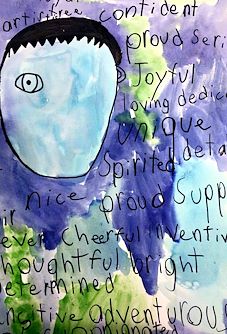 artistic free confident
proud Seri
Joyful
loving dedic
unique
Spirited deta
nice proud Supp
ever Cheerful Inventiv
houghtful bright
determined
ensitive adventurous